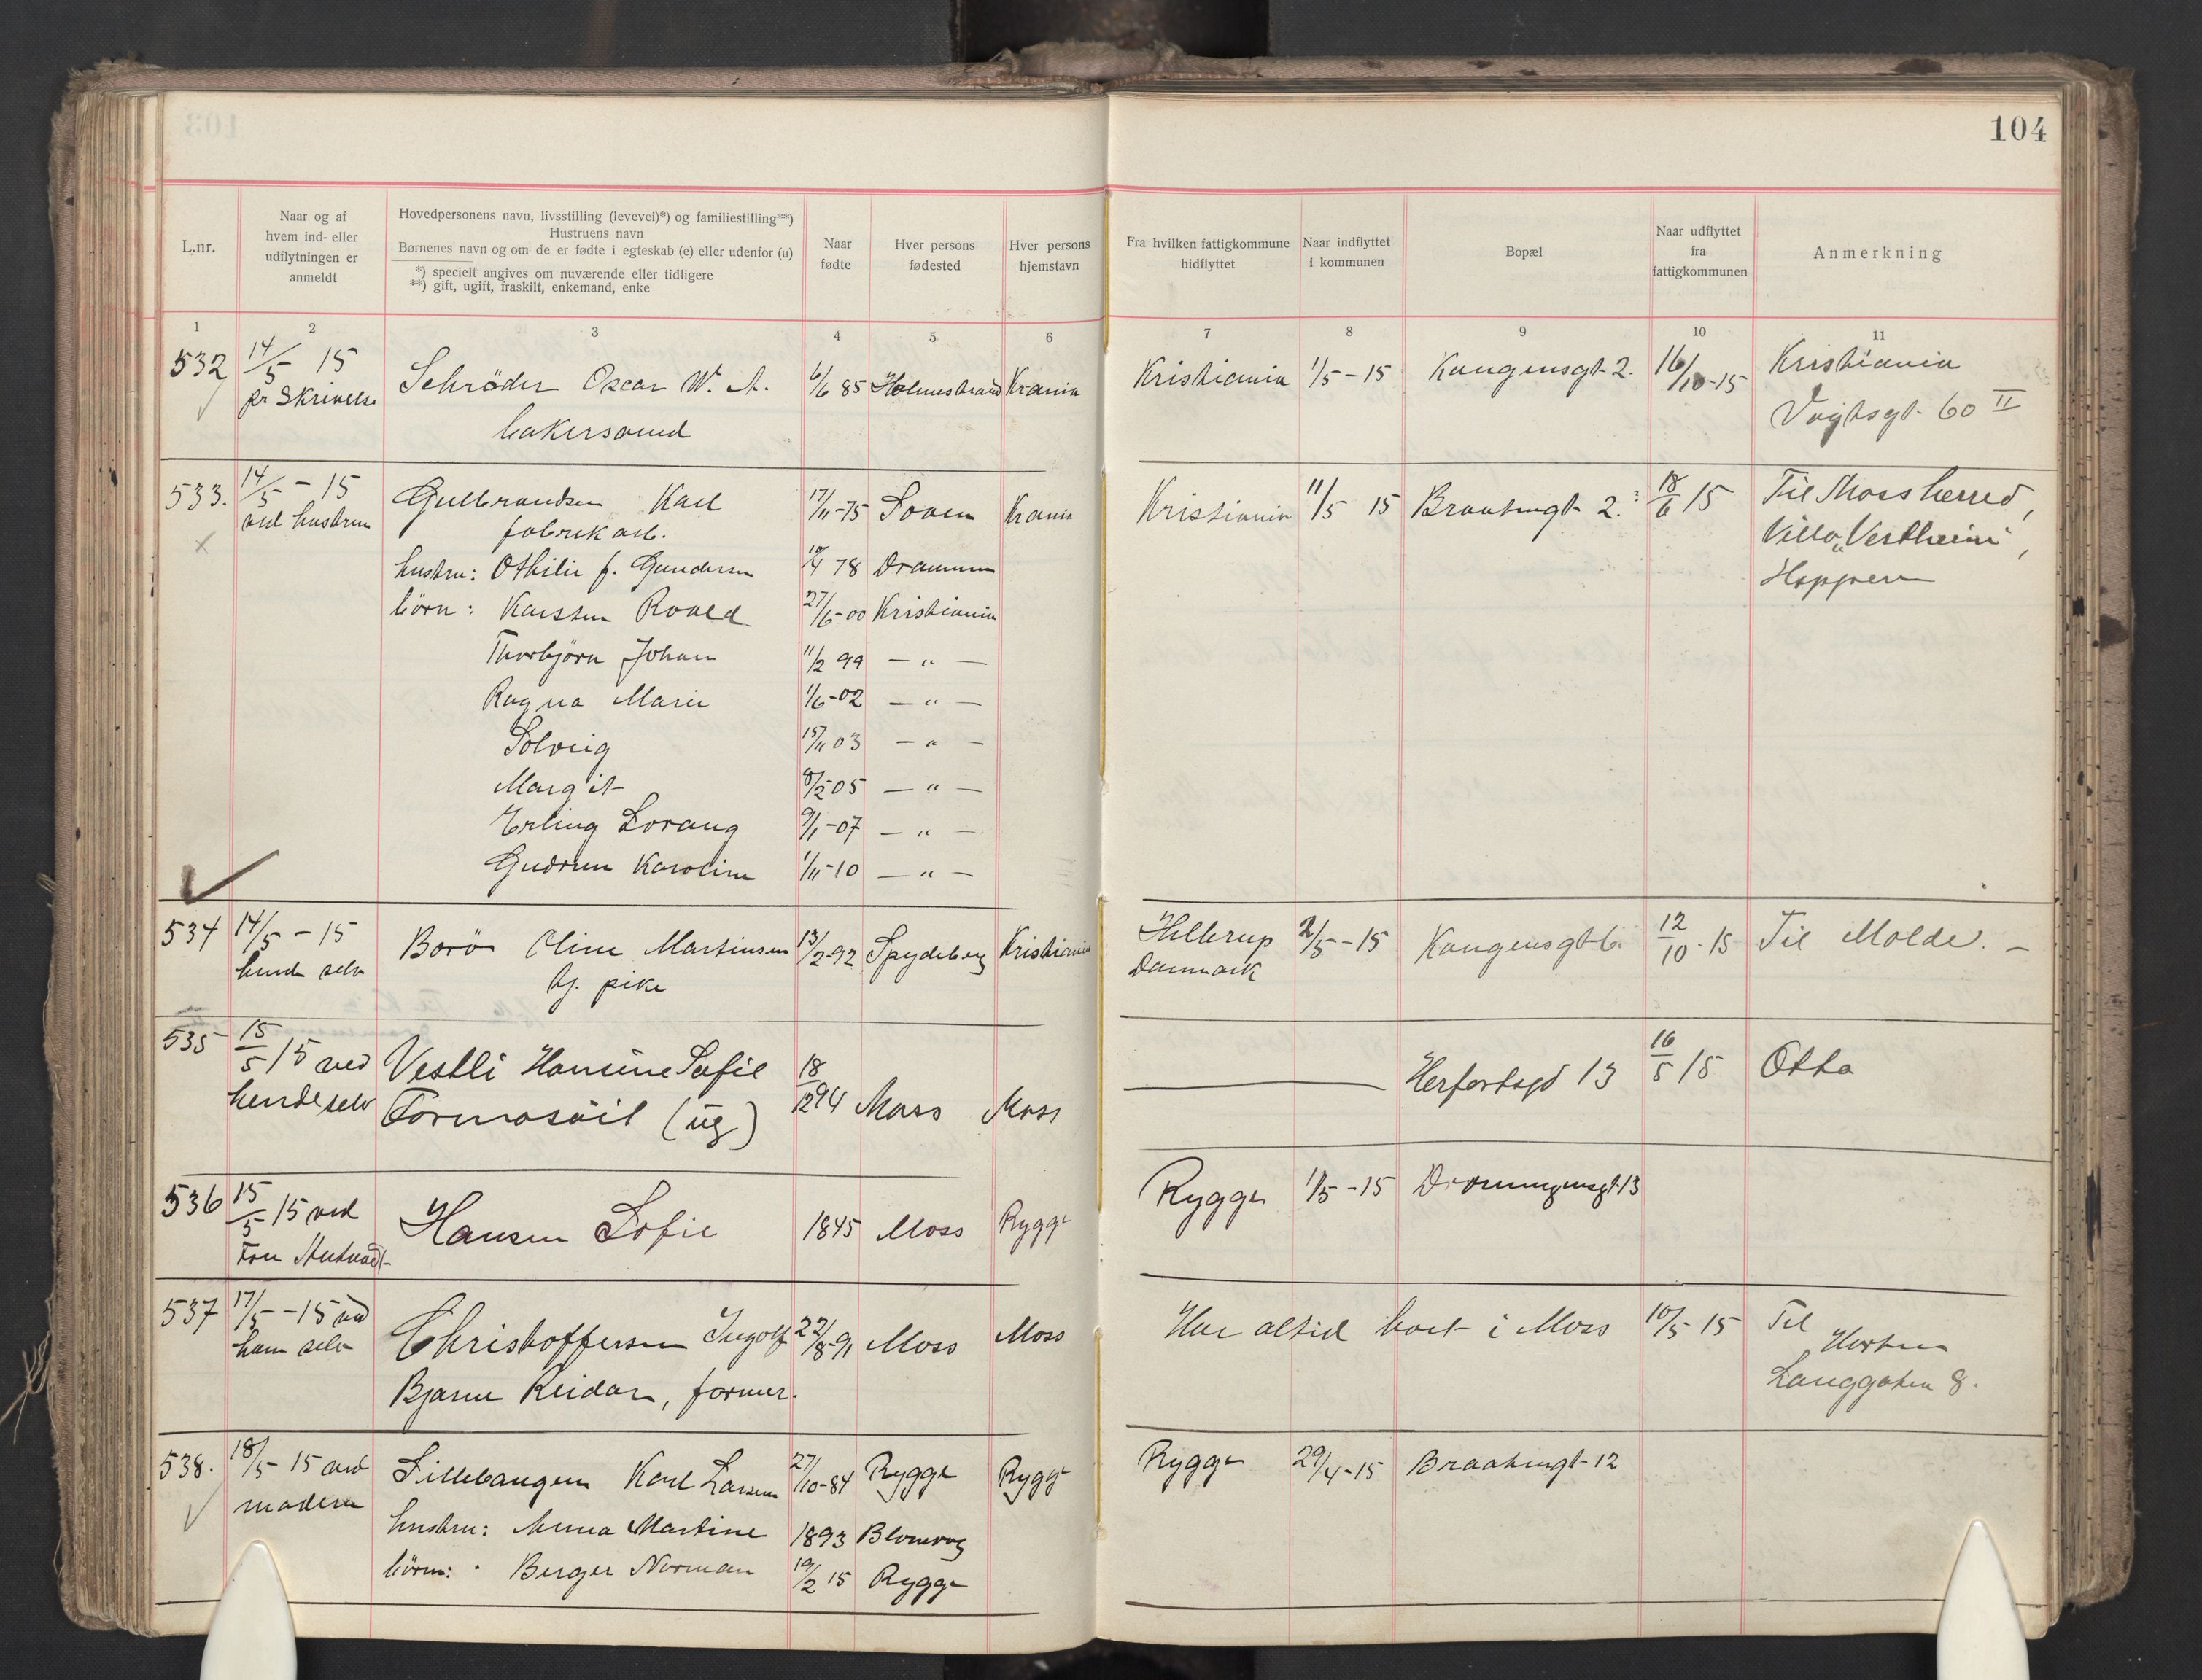 104
L.nr.
Naar og af
hvem ind- eller
udflytningen er
anmeldt
Hovedpersonens navn, livsstilling (levevei)*) og familiestilling**)
Hustruens navn
Børnenes navn og om de er fødte i egteskab (e) eller udenfor (u)
*) specielt angives om nuværende eller tidligere
**) gift, ugift, fraskilt, enkemand, enke
Naar
fødte
Hver persons
fødested
Hver persons
hjemstavn
Fra hvilken fattigkommune
hidflyttet
Naar indflyttet
i kommunen
Bopæl
Naar udflyttet
fra
fattigkommunen
Anmerkning
1 2 3 4 5 6 7 8 9 10 11
532 14/5 15 Schrøder Oscar W. A. 6/6 85 Holmestrand Krania Kristiania 1/5-15 Kongensgt 2. 16/10-15 Kristiania
pr Skrivelse bakersvend Vogtsgt. 60 II
533. 14/5-15 Gulbrandsen Karl 17/11-75 Krania Kristiania 11/5 15 Braatengt 2. 18/6 15 Til Moss herred,
ved hustru fabrikarb. Villa "Vestheim",
hustru: Othilie f. Gundersen 78 Drammen Hoppern
börn: Karsten Roald 27/6-00 Kristiania
Thorbjörn Johan 11/2 99 — " —
Ragna Marie 1/6-02 — " —
Solveig 15/11 03 — " —
Margit 8/2 05 — " —
Erling Lorang 9/1-07 — " —
Gudrun Karoline 1/11-10 — " —
534 14/5-15 Borö Oline Martinsen 13/2-92 Spydeberg Kristiania Hellerup 2/5-15 Kongensgt 6 12/10-15 Til Molde. —
hende selv tj. pike Danmark
535 15/5 15 ved Vestli Hansine Sofie 18/12 94 Moss Moss Herfortsgd 13 16/5 15 Otta
hende selv Tormosöil (ug)
536 15/5 15 ved Hansen Sofie 1845 Moss Rygge Rygge 1/5-15 Dronningensgt 13
Fru
537 17/5-15 ved Christoffersen Ingolf 22/8-91 Moss Moss Har altid boet i Moss 10/5 15 Til
ham selv Bjarne Reidar, former. Horten
Langgaten 8.
538. 18/5-15 ved Lillebaugen Karl Larsen 27/10-84 Rygge Rygge Rygge 29/4-15 Braatengt 12
moderen hustru: Anna Martine 1893 Blomvag
börn: Berger Norman 19/2 15 Rygge